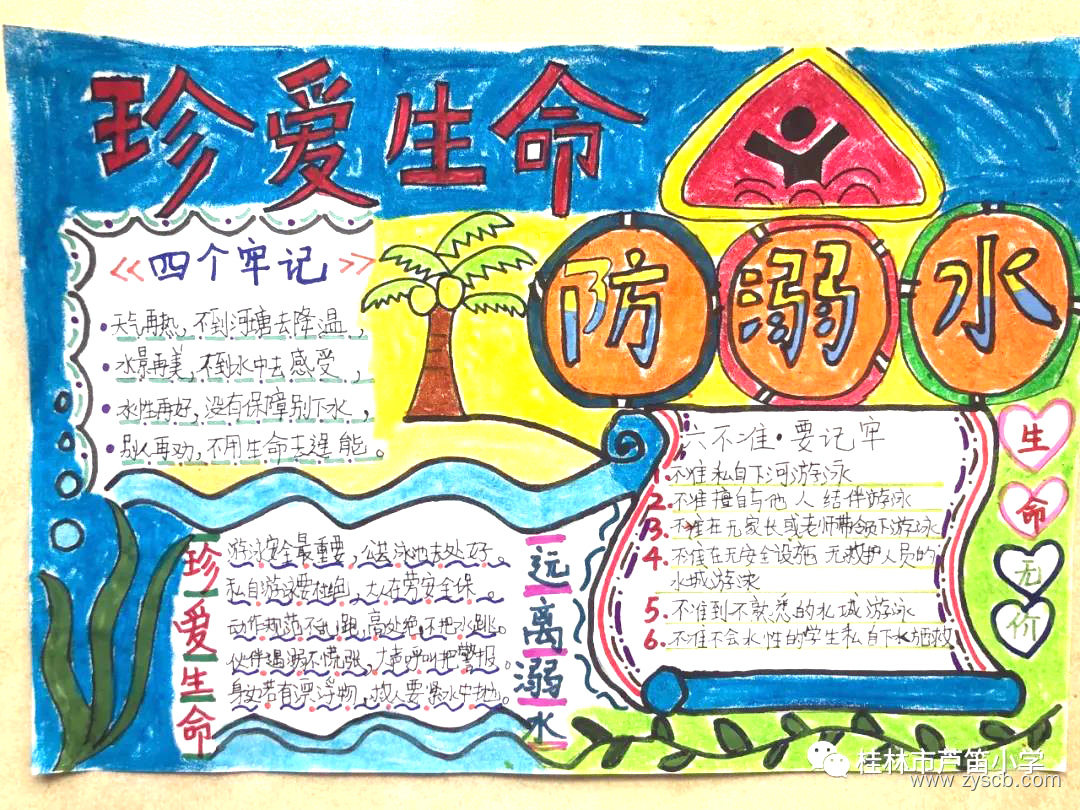 珍爱生命
防溺水
《四个牢记》
天气再热，不到河塘去降温，
水景再美，不到水中去感受，
水性再好，没有保障别下水，
别人再劝，不用生命去逞能。
六不准·要记牢
1.不准私自下河游泳
2.不准擅自与他人结伴游泳
3.不准在无家长或老师带领下游泳
4.不准在无安全设施 无救护人员的
水域游泳
5.不准到不熟悉的水域游泳
6.不准不会水性的学生私自下水施救
生命无价
珍爱生命
游泳安全最重要，公共泳池去处好。
私自游泳要杜绝，大人在旁安全保。
动作规范不乱跳，高处免不把水跳。
伙伴遇溺不慌张，大声呼叫把警报。
身边若有漂浮物，救人要
远离溺水
桂林市芦笛小学
www.zyscb.com